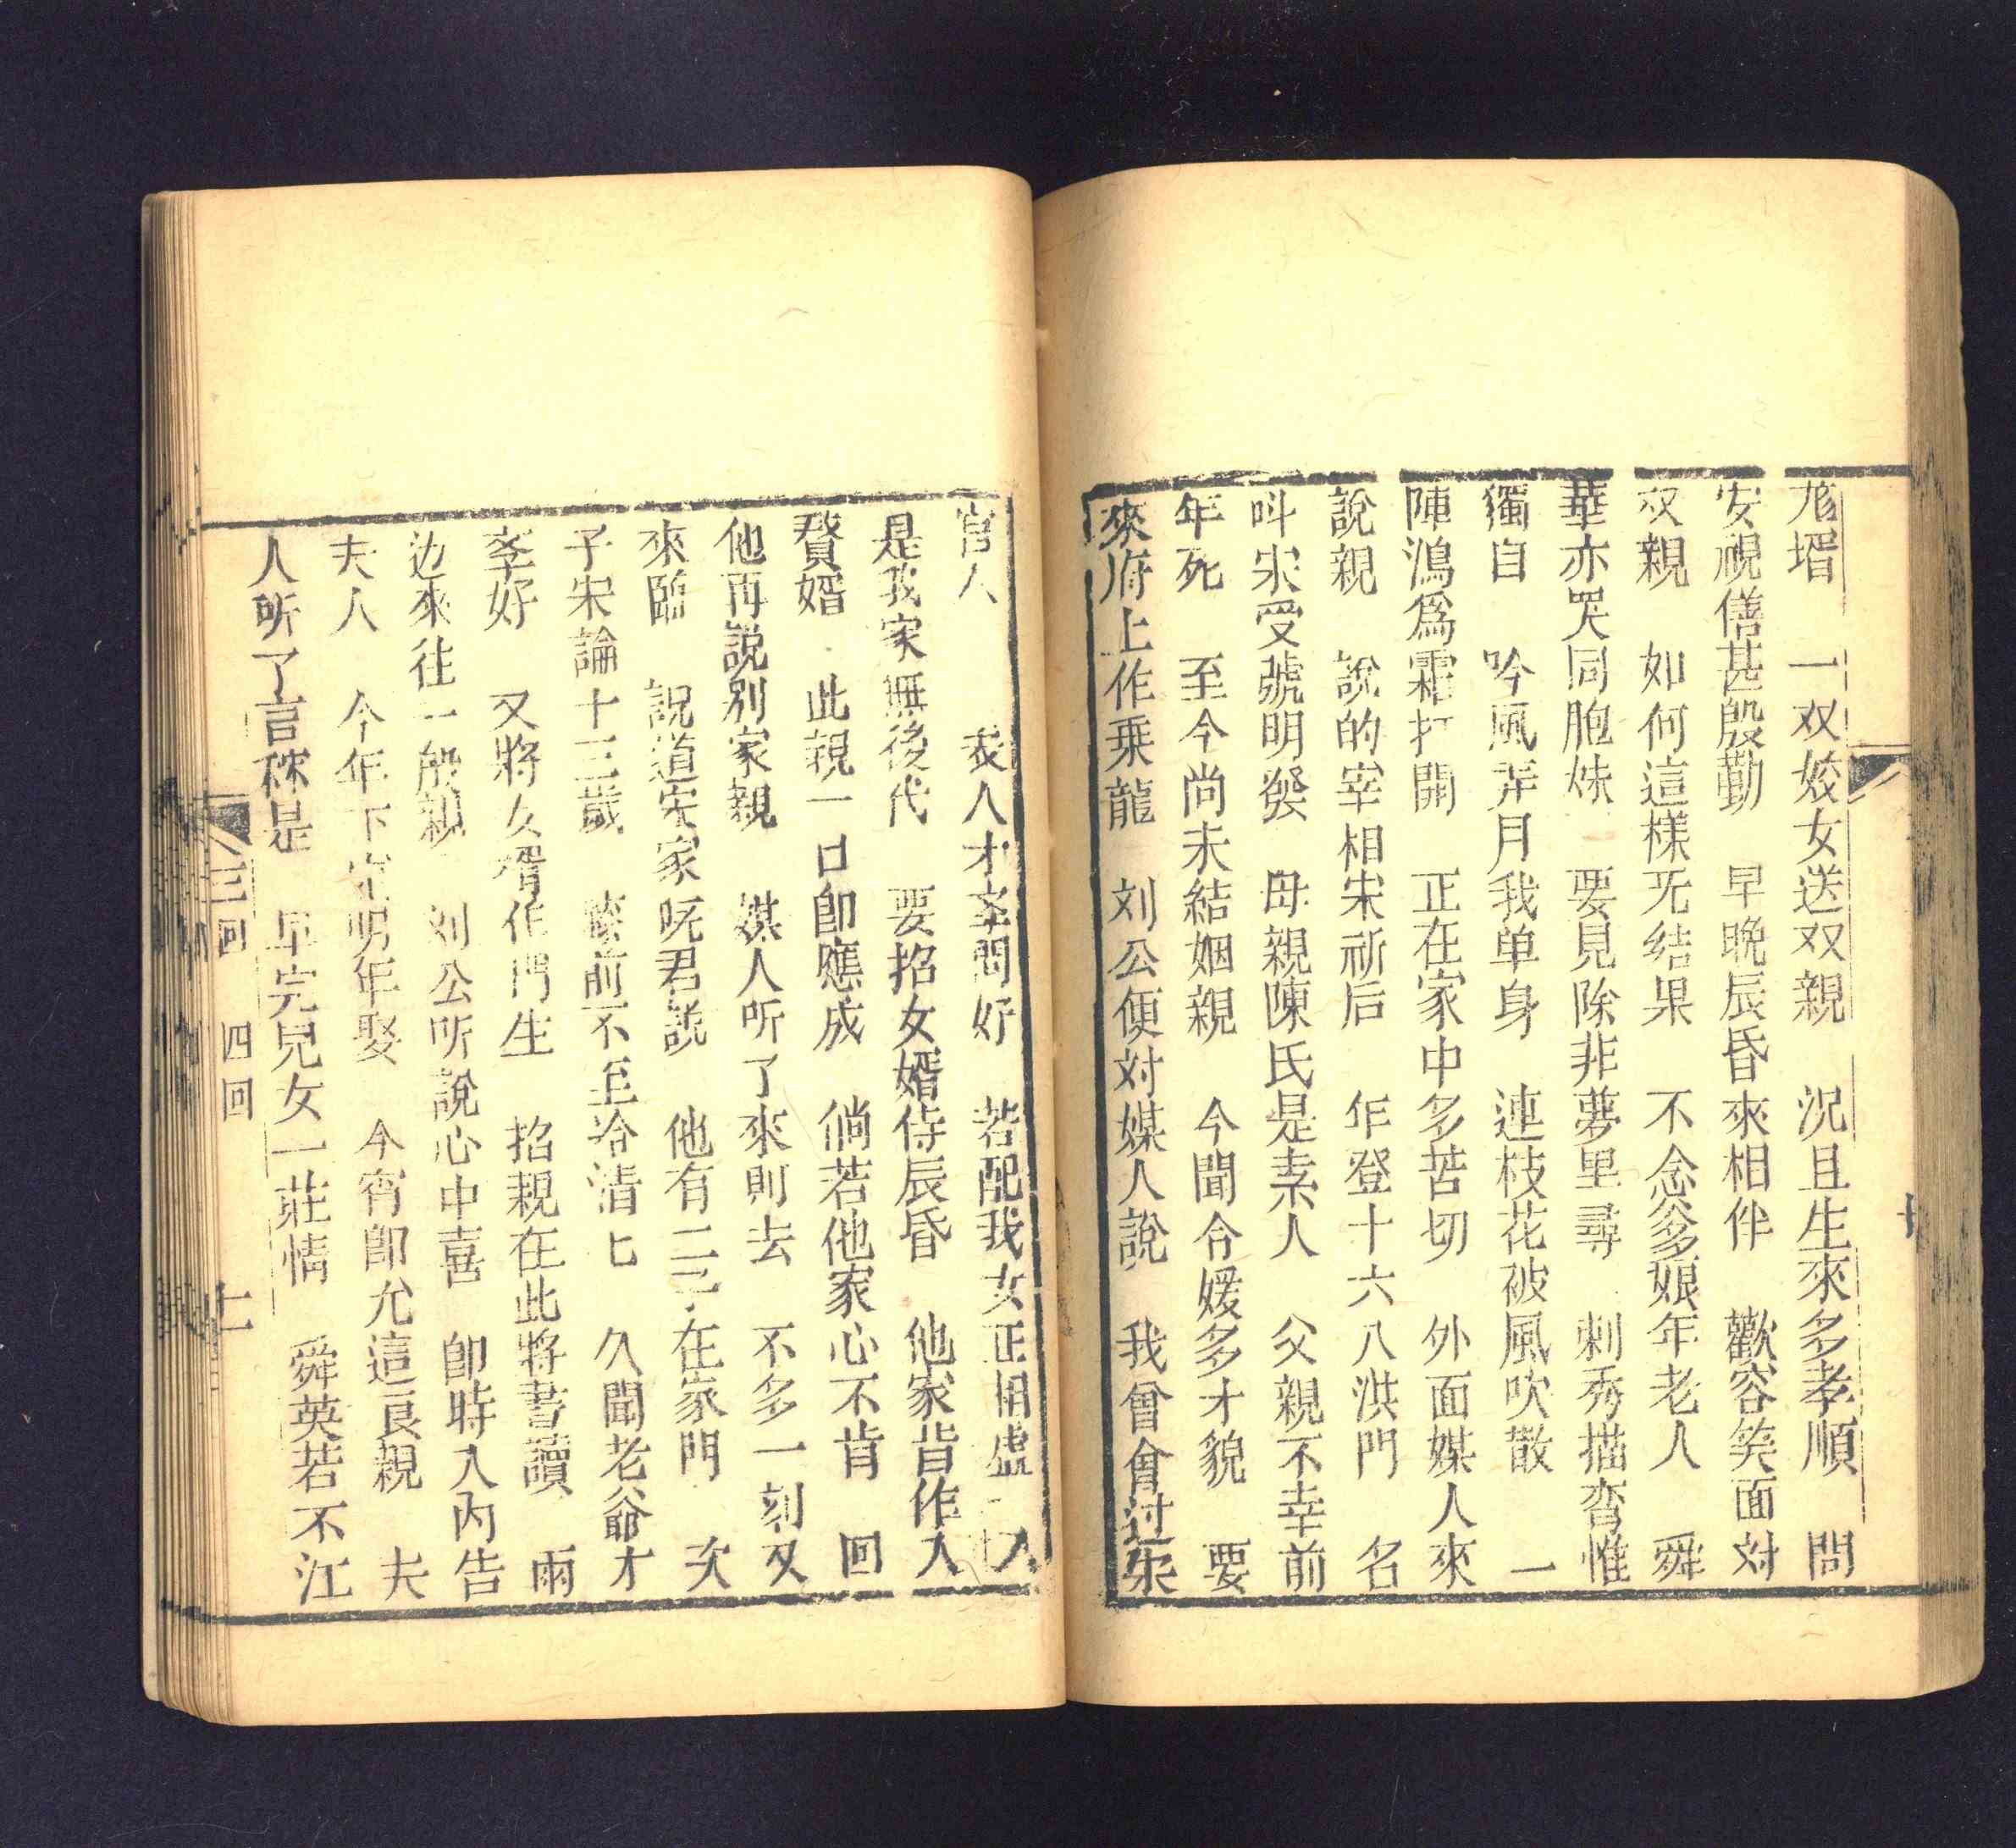 尨壻 一双姣女送双親 况且生來多孝順 問
安視僐甚殷勤 早晚辰昏來相伴 歡容笑面対
双親 如何這樣旡结果 不念爹娘年老人 舜
華亦哭同胞妹 要見除非夢里尋 刺秀描鸾惟
獨自 吟風弄月我单身 連枝花被風吹散 一
陣鴻爲霜打開 正在家中多苦切 外面媒人來
說親 說的宰相宋祈后 年登十六八洪門 名
呌宋受號明發 母親陳氏是素人 父親不幸前
年死 至今尚未結姻親 今聞令媛多才貌 要
來府上作乗龍 刘公便対媒人說 我曾會过宋
官人 表人才孝問好 若配我女正相 人
是我家無後代 要招女婿侍辰昏 他家肯作入
贅婿 此親一口卽應成 倘若他家心不肯 回
他再説别家親 媒人听了來則去 不多一刻又
來臨 説道宋家呒君説 他有二三在家門 次
子宋論十三歲 前不至冷清匕 久聞老爺才
孝好 又將女壻作門生 招親在此將書讀 兩
边來往一般親 刘公听說心中喜 卽時入內告
夫人 今年下定明年娶 今宵卽允這良親 夫
人听了言稱是 早完兒女一莊情 舜英若不江
三回 四回 十一